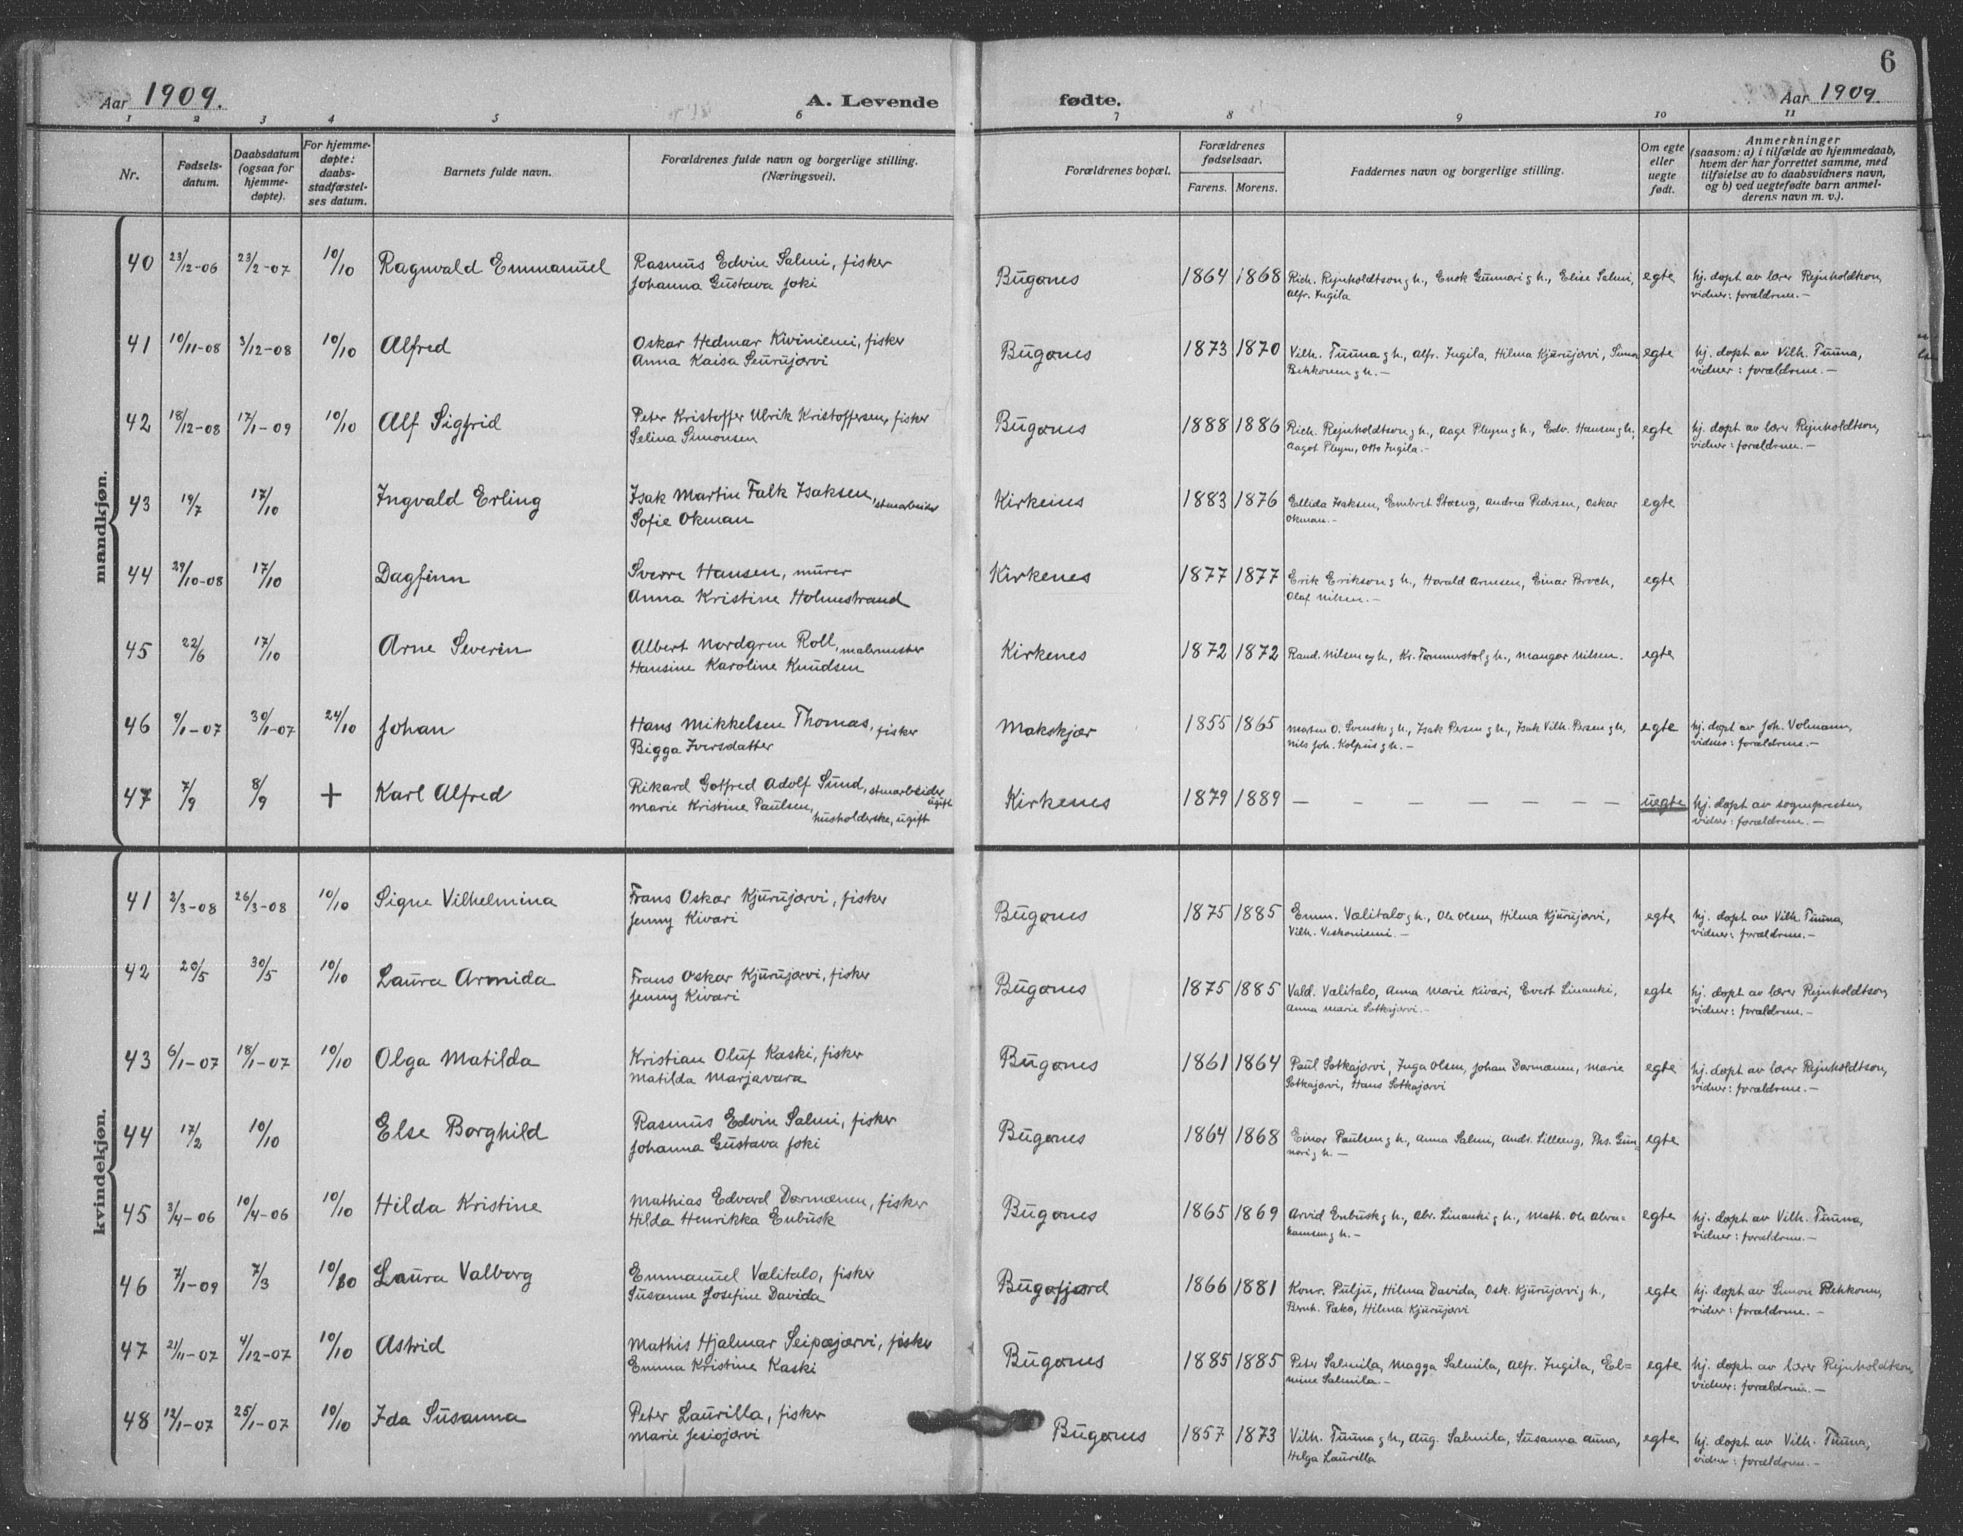 6
Aar 1909. A. Levende fødte. Aar 1909.
1 2 3 4 5 6 7 8 9 10 11
Nr. Fødsels-datum. Daabsdatum (ogsaa for hjemme-døpte). For hjemme-døpte: daabs-stadfæstel-ses datum. Barnets fulde navn. Forældrenes fulde navn og borgerlige stilling. (Næringsvei). Forældrenes bopæl. Forældrenes fødselsaar. Farens. Morens. Faddernes navn og borgerlige stilling. Om egte eller uegte født. Anmerkninger (saasom: a) i tilfælde av hjemmedaab, hvem der har forrettet samme, med tilføielse av to daabsvidners navn, og b) ved uegtefødte barn anmel-derens navn m. v.).
mandkjøn.
40 23/12-06 23/2-07 10/10 Ragnvald Emmanuel Rasmus Edvin Salmi, fisker Bugønes 1864 1868 Rich. Rejnholdtson g h., Enok Gunnari g h., Elise Salmi, egte hj. døpt av lærer Rejnholdtson,
Johanna Gustava Joki Alfr. Ingila vidner: forældrene.-
41 10/11-08 3/12-08 10/10 Alfred Oskar Hedmar Kiviniemi, fisker Bugønes 1873 1870 Vilh. Tuuna g h., Alfr. Ingila, Hilma Kjurujærvi, Simon egte hj. døpt av Vilh. Tuuna,
Anna Kaisa Seurujærvi g h.- vidner: forældrene.-
42 18/12-08 17/1-09 10/10 Alf Sigfrid Peter Kristoffer Ulrik Kristoffersen, fisker Bugønes 1888 1886 Rich. Rejnholdtson g h., Aage Pleym g h., Edv. Hansen g h., egte hj. døpt av lærer Rejnholdtson,
Selina Simonsen Aagot Pleym, Otto Ingila.- vidner: forældrene.-
43 19/7 17/10 Ingvald Erling Isak Martin Falk Isaksen, stenarbeider Kirkenes 1883 1876 Ellida Isaksen, Embret Stræng, Andrea Pedersen, Oskar egte
Sofie Økman Økman.-
44 29/10-08 17/10 Dagfinn Sverre Hansen, murer Kirkenes 1877 1877 Erik Erikson g h., Harald Arnesen, Einar Broch, egte
Anna Kristine Holmestrand Olaf Nilsen.-
45 22/6 17/10 Arne Severin Albert Nordgren Roll, malermester Kirkenes 1872 1872 Rand. Nilsen g h., Kr. Tømmerstøl g h., Mangor Nilsen. egte
Hansine Karoline Knudsen
46 9/1-07 30/1-07 24/10 Johan Hans Mikkelsen Thomas, fisker Makskjær 1855 1865 Morten O. Svensk g h., Isak Persen g h., Isak Vilh. Persen g h., egte hj. døpt av Joh. Volmann,
Bigga Iversdatter Nils Joh. Kolpus g h.- vidner: forældrene.-
47 7/9 8/9 + Karl Alfred Rikard Gotfred Adolf Sund, stenarbeider, ugift Kirkenes 1879 1889 - - - - - - - - uegte hj. døpt av sognepresten,
Marie Kristine Paulsen, husholderske, ugift vidner: forældrene.-
kvindekjøn.
41 2/3-08 26/3-08 10/10 Signe Vilhelmina Frans Oskar Kjurujærvi, fisker Bugønes 1875 1885 Emm. Vælitalo g h., Ole Olsen, Hilma Kjurujærvi, egte hj. døpt av Vilh. Tuuna,
Jenny Kivari Vilh. Veskoniemi.- vidner: forældrene.-
42 20/5 30/5 10/10 Laura Armida Frans Oskar Kjurujærvi, fisker Bugønes 1875 1885 Vald. Vælitalo, Anna Marie Kivari, Evert Linanki, egte hj. døpt av lærer Rejnholdtson,
Jenny Kivari Anna Marie Sotkajærvi.- vidner: forældrene.-
43 6/1-07 18/1-07 10/10 Olga Matilda Kristian Oluf Kaski, fisker Bugønes 1861 1864 Paul Sotkajærvi, Inga Olsen, Johan Dørmænen, Marie egte hj. døpt av lærer Rejnholdtson,
Matilda Marjavara Sotkajærvi, Hans Sotkajærvi vidner: forældrene.-
44 17/2 10/10 Else Borghild Rasmus Edvin Salmi, fisker Bugønes 1864 1868 Einar Paulsen g h., Anna Salmi, Andr. Lilleeng, Ths. Gun- egte
Johanna Gustava Joki nari g h.-
45 3/4-06 10/4-06 10/10 Hilda Kristine Mathias Edvard Dørmænen, fisker Bugønes 1865 1869 Arvid Enbusk g h., Abr. Linanki g h., Math. Ole Abra- egte hj. døpt av Vilh. Tuuna,
Hilda Henrikka Enbusk hamsen g h.- vidner: forældrene.-
46 7/1-09 7/3 10/10 Laura Valborg Emmanuel Vælitalo, fisker Bugøfjord 1866 1881 Konr. Pulju, Hilma Davida, Osk. Kjurujærvi g h., egte hj. døpt av Simon
Susanne Josefine Davida Bernh. Hilma Kjurujærvi vidner: forældrene.-
47 21/11-07 4/12-07 10/10 Astrid Mathis Hjalmar Seipæjærvi, fisker Bugønes 1885 1885 Peter Salmila, Magga Salmila, Alfr. Ingila, Eel= egte hj. døpt av lærer Rejnholdtson,
Emma Kristine Kaski mine Salmila.- vidner: forældrene.-
48 12/1-07 25/1-07 10/10 Ida Susanna Peter Laurilla, fisker Bugønes 1857 1873 Vilh. Tuuna g h., Aug. Salmila, Susanna Auna, egte hj. døpt av Vilh. Tuuna,
Marie Jesiojærvi Helga Laurilla vidner: forældrene.-